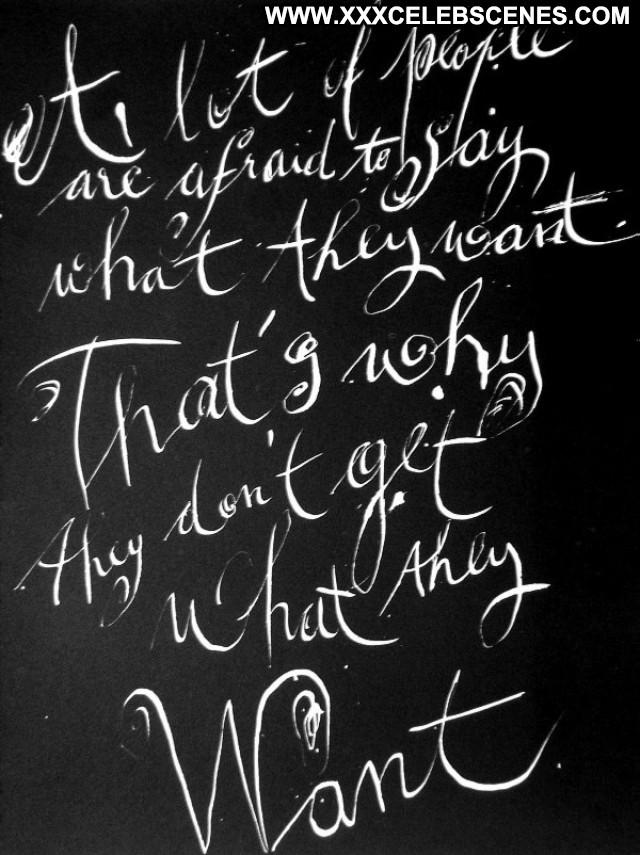 WWW.XXXCELEBSCENES.COM
A lot of people
are afraid to say
what they want.
That's why
they don't get
what they
Want.